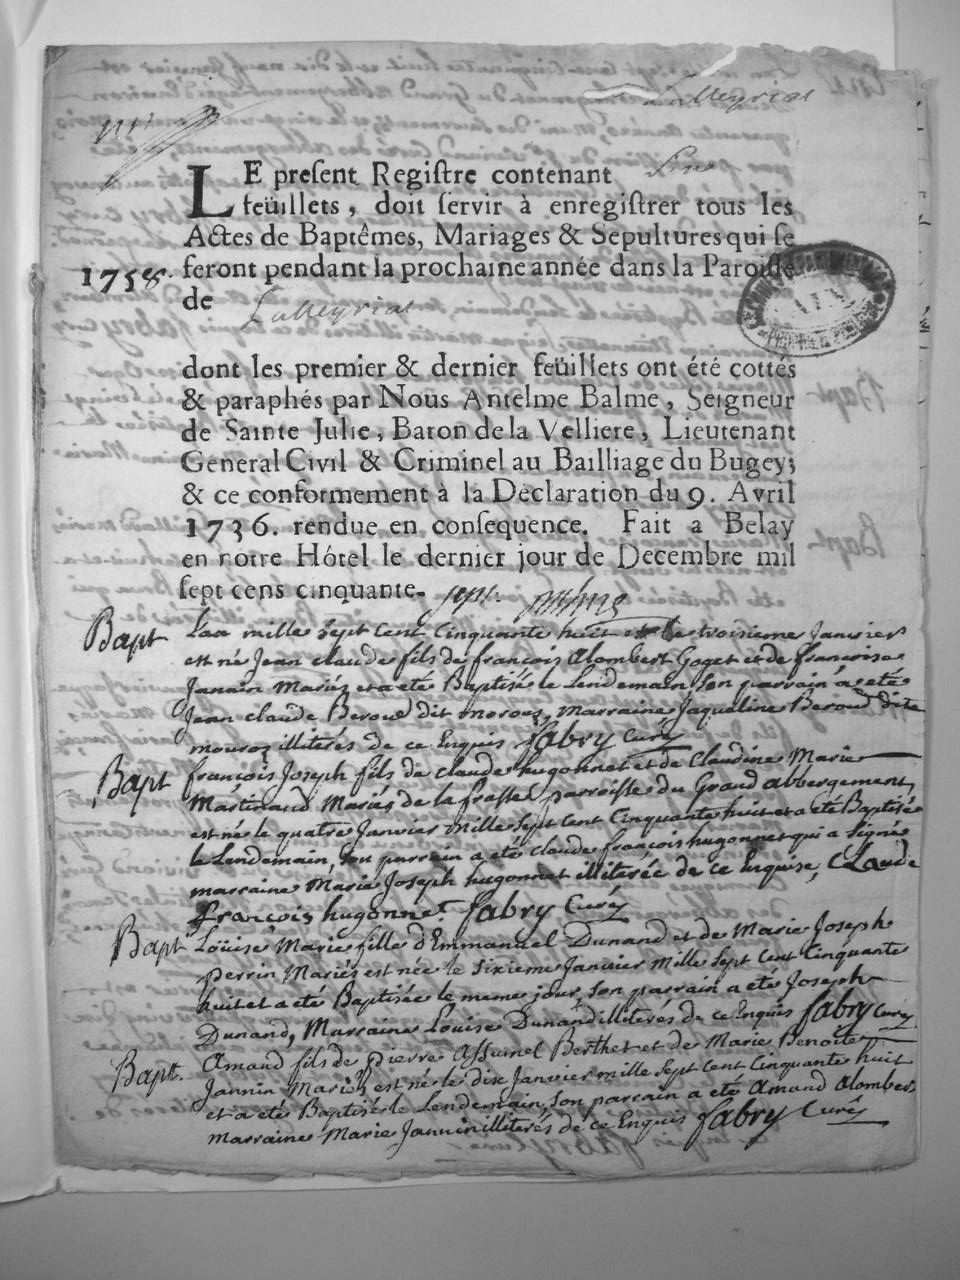 Lalleyriat
LE present Registre contenant Sine
feüillets, doit servir à enregistrer tous les
Actes de Baptêmes, Mariages & Sepultures qui se
1758. feront pendant la prochaine année dans la Paroisse
de Lalleyriat
dont les premier & dernier feüillets ont été cottés
& paraphés par Nous Antelme Balme, Seigneur
de Sainte Julie, Baron de la Velliere, Lieutenant
General Civil & Criminel au Bailliage du Bugey;
& ce conformement à la Declaration du 9. Avril
1736. rendue en consequence. Fait a Belay
en notre Hôtel le dernier jour de Decembre mil
sept cens cinquante- sept.
Bapt Lan mille sept Cent Cinquante huit et le troisieme Janvier
est né Jean claude fils de françois alombert Goget et de francoise
Janain Mariéz et a eté Baptisé le Lendemain Son parrain a eté
Jean claude Beroud dit moroux, Marraine Jaqueline Beroud dite
mouroz illiterés de ce Enquis fabry Curé
Bapt françois Joseph fils de claude hugonnet et de Claudine Marie
Martinaud Mariés de la fresse parroisse du Grand abbergement
est né le quatre Janvier mille sept Cent Cinquante huit et a eté Baptisé
le Lendemain, son parrain a eté claude françois hugonnet qui a signé
marraine Marie Joseph hugonnet illiterée de ce Enquise, Claude
françois hugonnet. fabry Curéz
Bapt Loüise Marie fille d'Emmanuel Dunand et de Marie Joseph
perrin Mariés est née le sixieme Janvier mille sept Cent Cinquante
huit et a eté Baptisée le meme jour, son parrain a eté Joseph
Dunand, Marraine Louise Dunand illiterés de ce Enquis fabry Curéz
Bapt. Amand fils de Pierre Assumel Berthet et de Marie Benoite
Jannin Mariéz est né le dix Janvier mille sept Cent Cinquante huit
et a eté Baptisé le Lendemain, son parrain a eté Amand alombert
marraine Marie Jannin illiterés de ce Enquis fabry Curéz